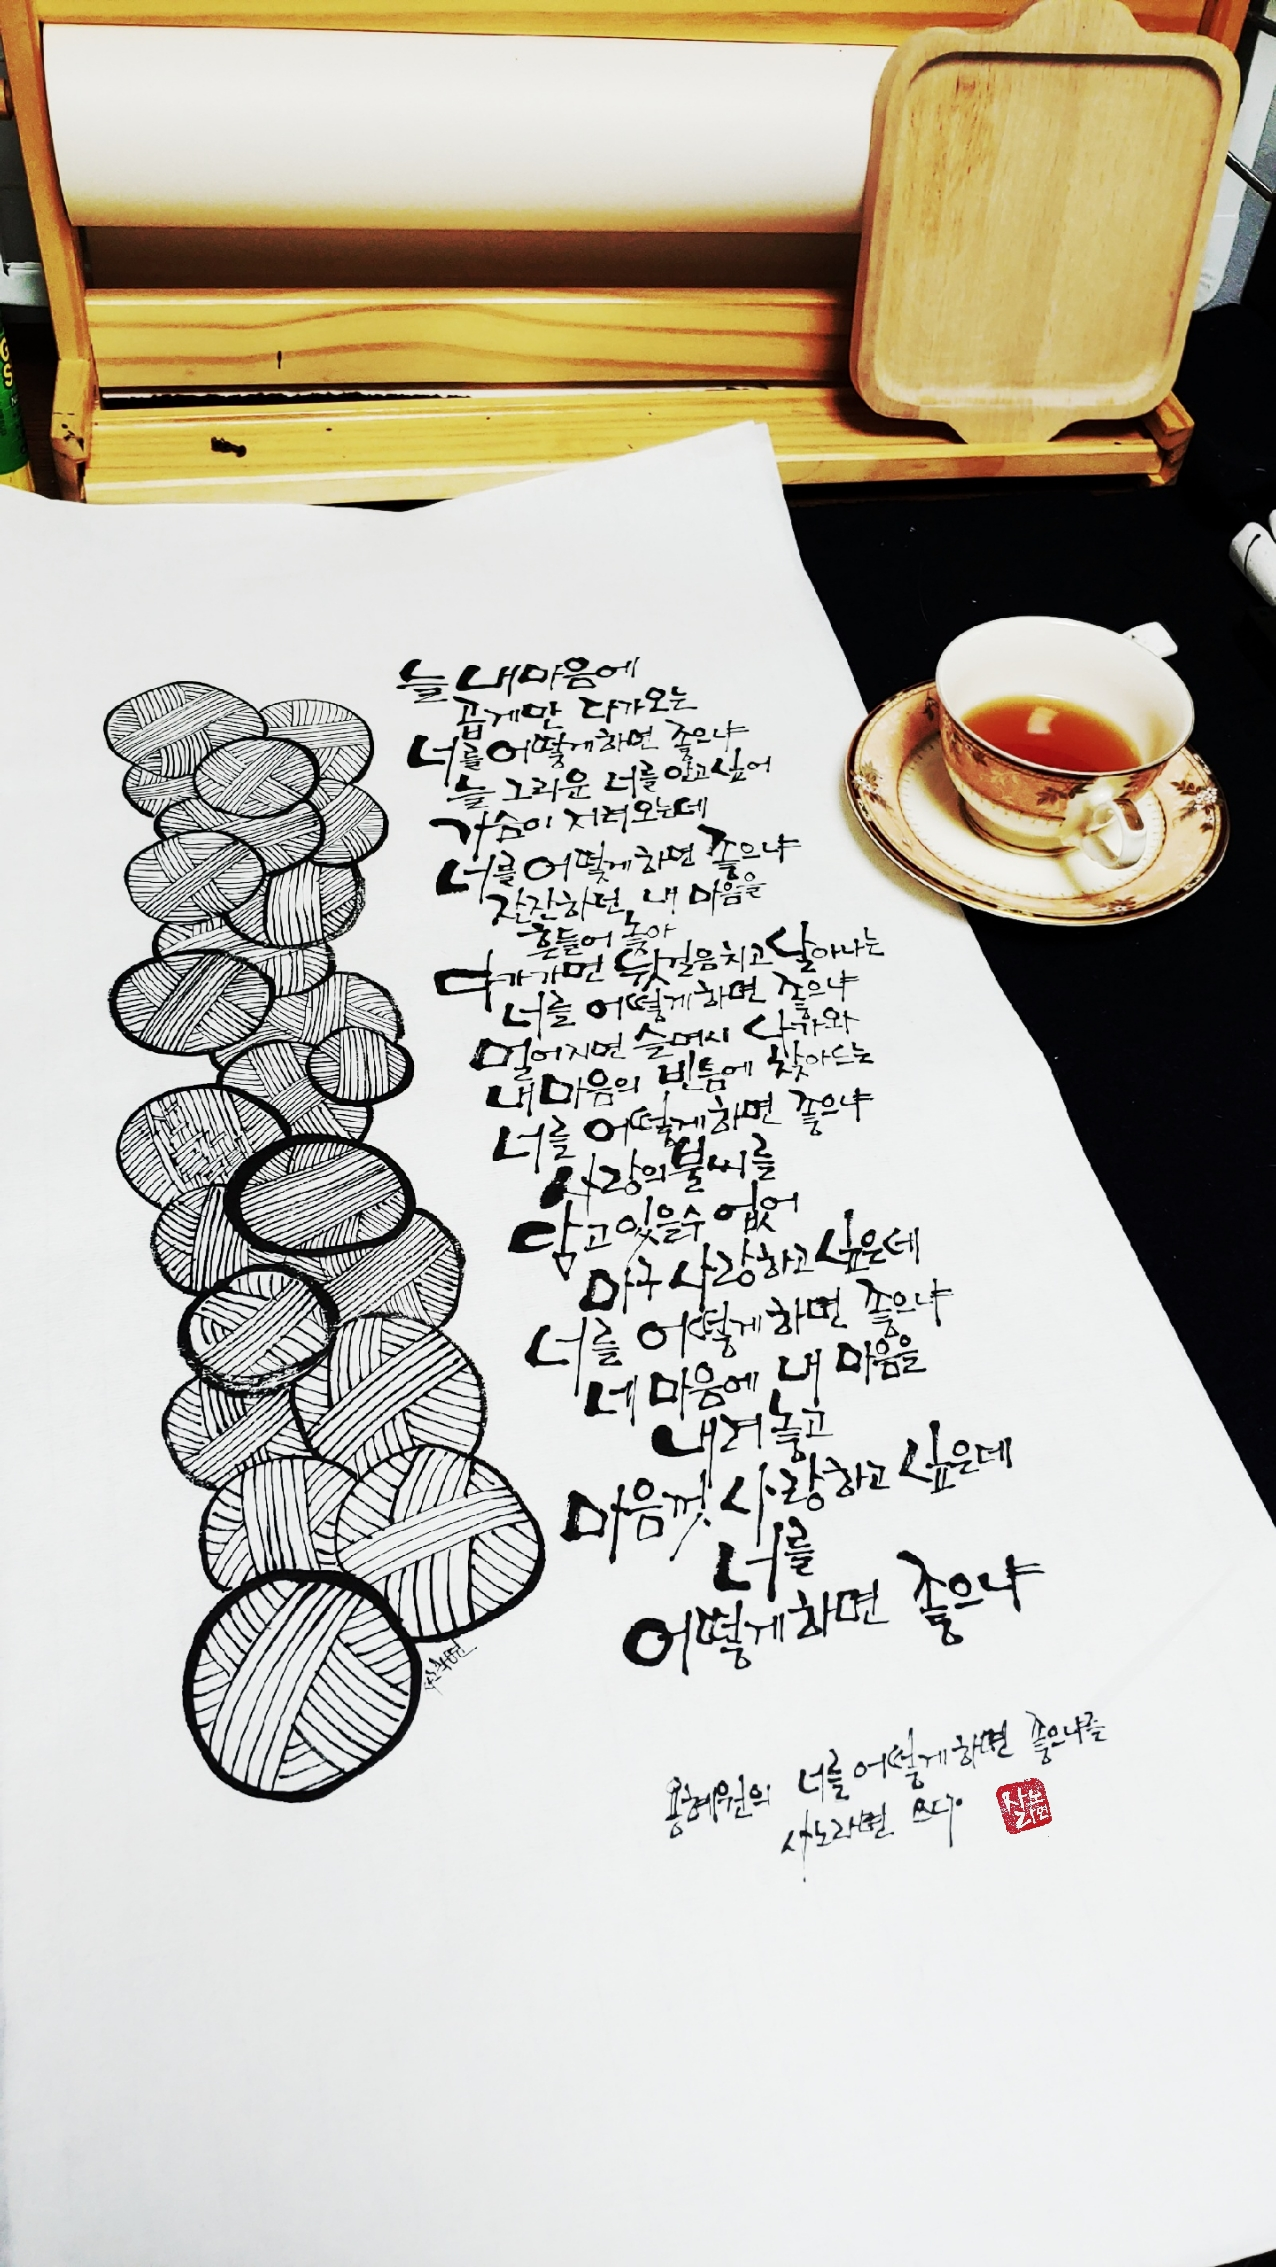 늘 내 마음에
곱게만 다가오는
너를 어떻게 하면 좋으냐
늘 그리운 너를 안고 싶어
가슴이 저려오는데
너를 어떻게 하면 좋으냐
잔잔하던 내 마음을
흔들어 놓아
다가가면 뒷걸음치고 달아나는
너를 어떻게 하면 좋으냐
멀어지면 슬며시 다가와
내 마음의 빈틈에 찾아드는
너를 어떻게 하면 좋으냐
사랑의 불씨를
담고 있을 수 없어
마구 사랑하고 싶은데
너를 어떻게 하면 좋으냐
네 마음에 내 마음을
내려놓고
마음껏 사랑하고 싶은데
너를
어떻게 하면 좋으냐
용혜원의 너를 어떻게 하면 좋으냐를
사노라면 쓰다.